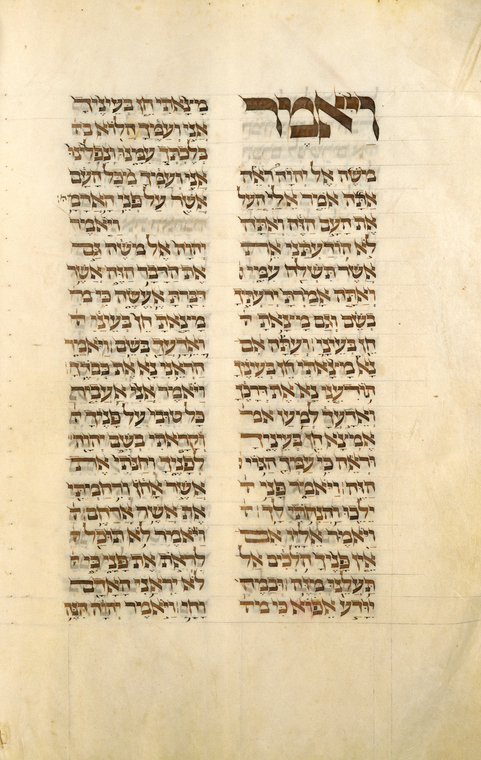 ויאמר
משה אל יהוה ראה
אתה אמר אלי העל
את העם הזה ואתה
לא הודעתני את
אשר תשלח עמי
ואתה אמרת ידעתיך
בשם וגם מצאת
חן בעיני ועתה אם
נא מצאתי חן בעיניך
הודעני נא את דרכך
ואדעך למען
אמצא חן בעיניך
וראה כי עמך הגוי
הזה ויאמר פני
ילכו והנחתי לך
ויאמר אליו אם
אין פניך הלכים אל
תעלנו מזה ובמה
יודע אפוא כי
מצאתי חן בעיניך
אני ועמך הלוא
בלכתך עמנו ונפלינו
אני ועמך מכל העם
אשר על פני האדמה
ויאמר
יהוה אל משה גם
את הדבר הזה אשר
דברת אעשה כי
מצאת חן בעיני
ואדעך בשם ויאמר
הראני נא את כבדך
ויאמר אני אעביר
כל טובי על פניך
וקראתי בשם יהוה
לפניך וחנתי את
אשר אחן ורחמתי
את אשר ארחם
ויאמר לא תוכל
לראת את פני כי
לא יראני האדם
וחי ויאמר יהוה הנה